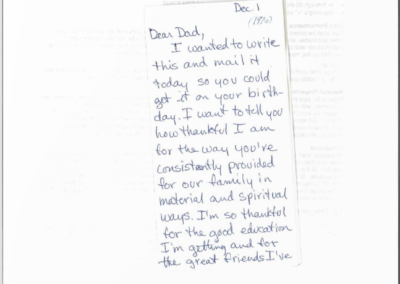 Dec. 1
Dear Dad,
I wanted to write
this and mail it
today so you could
get it on your birth-
day. I want to tell you
how thankful I am
for the way you're
consistently provided
for our family in
material and spiritual
ways. I'm so thankful
for the good education
I'm getting and for
the great friends I've